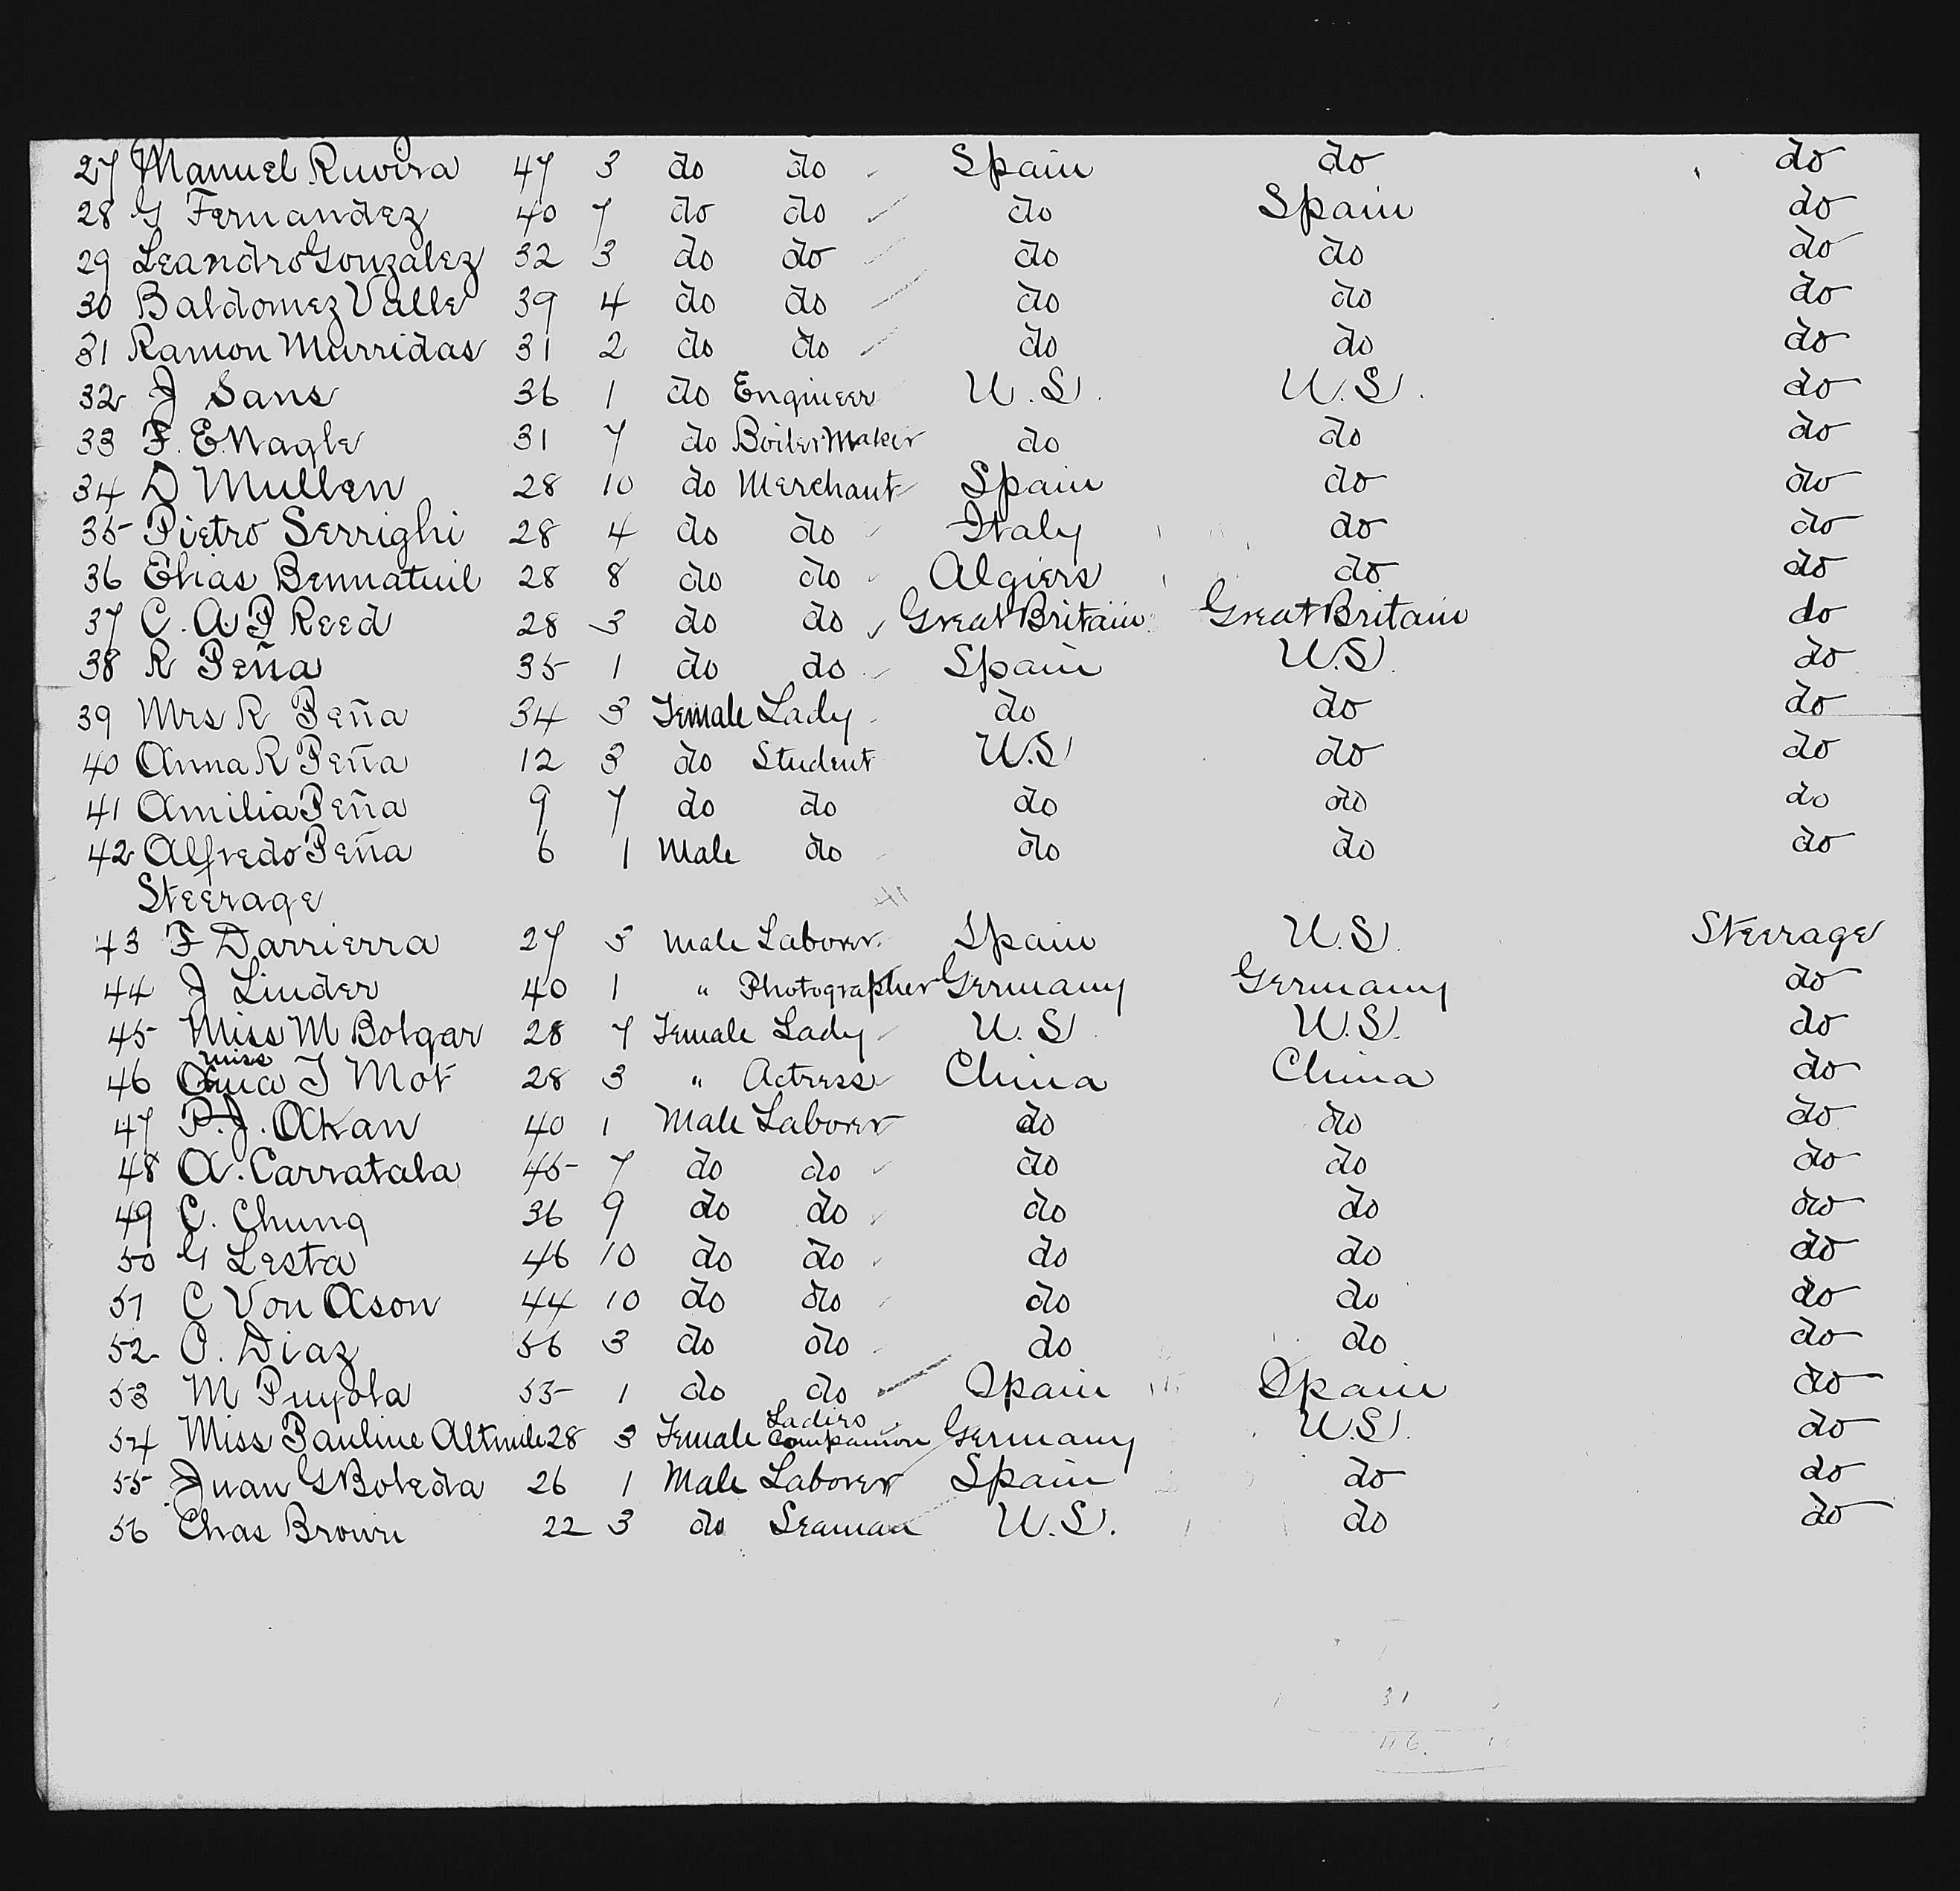 27 Manuel Ruvira 47 3 do do Spain do do
28 G Fernandez 40 7 do do do Spain do
29 Leandro Gonzalez 32 3 do do do do do
30 Baldomez Valle 39 4 do do do do do
31 Ramon Murridas 31 2 do do do do do
32 J Sans 36 1 do Engineer U.S. U.S. do
33 F. E. Nagle 31 7 do Boiler Maker do do do
34 D Mullen 28 10 do Merchant Spain do do
35 Pietro Serrighi 28 4 do do Italy do do
36 Elias Bennatuil 28 8 do do Algiers do do
37 C. A. P Reed 28 3 do do Great Britain Great Britain do
38 R Peña 35 1 do do Spain U.S. do
39 Mrs R Peña 34 3 Female Lady do do do
40 Anna R Peña 12 3 do Student U.S do do
41 Amilia Peña 9 7 do do do do do
42 Alfredo Peña 6 1 Male do do do do
Steerage
43 F Darrierra 27 3 Male Laborer Spain U.S. Steerage
44 J Linder 40 1 " Photographer Germany Germany do
45 Miss M Bolgar 28 7 Female Lady U.S. U.S. do
miss
46 T Mot 28 3 " Actress China China do
47 P. J. Akan 40 1 Male Laborer do do do
48 A. Carratala 45 7 do do do do do
49 C. Chung 36 9 do do do do do
50 G Lesta 46 10 do do do do do
51 C Von Ason 44 10 do do do do do
52 O. Diaz 56 3 do do do do do
53 M Puyola 53 1 do do Spain Spain do
Ladies
54 Miss Pauline 28 3 Female Companion Germany U.S. do
55 Juan G Boleda 26 1 Male Laborer Spain do do
56 Chas Brown 22 3 do Seaman U.S. do do
31